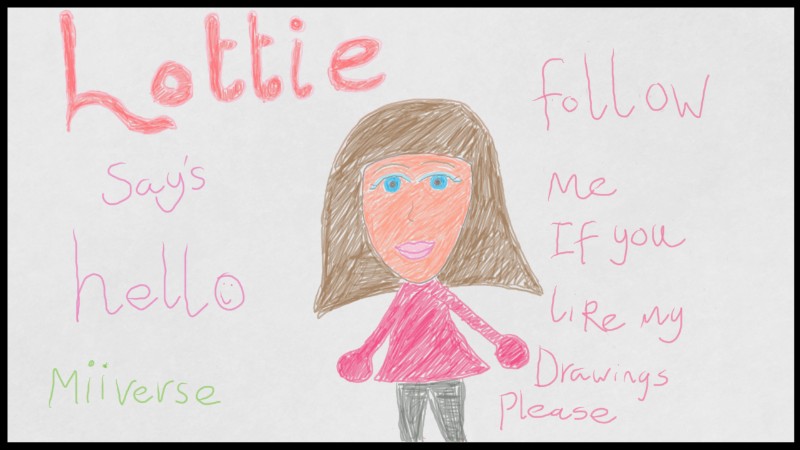 Lottie
Say's
hello
Miiverse
follow
me
If you
Like my
Drawings
Please